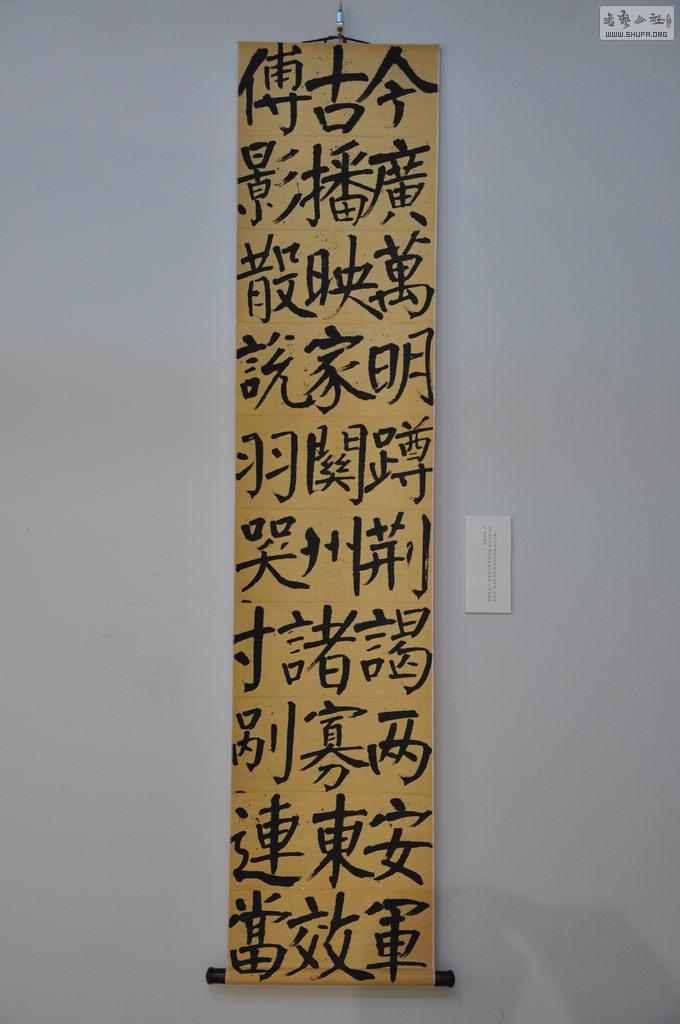 今古傅
廣播影
萬映散
明家說
蹲關羽
荊州哭
謁諸寸
两寡剐
安東連
軍效當
書藝公社
WWW.SHUFA.ORG